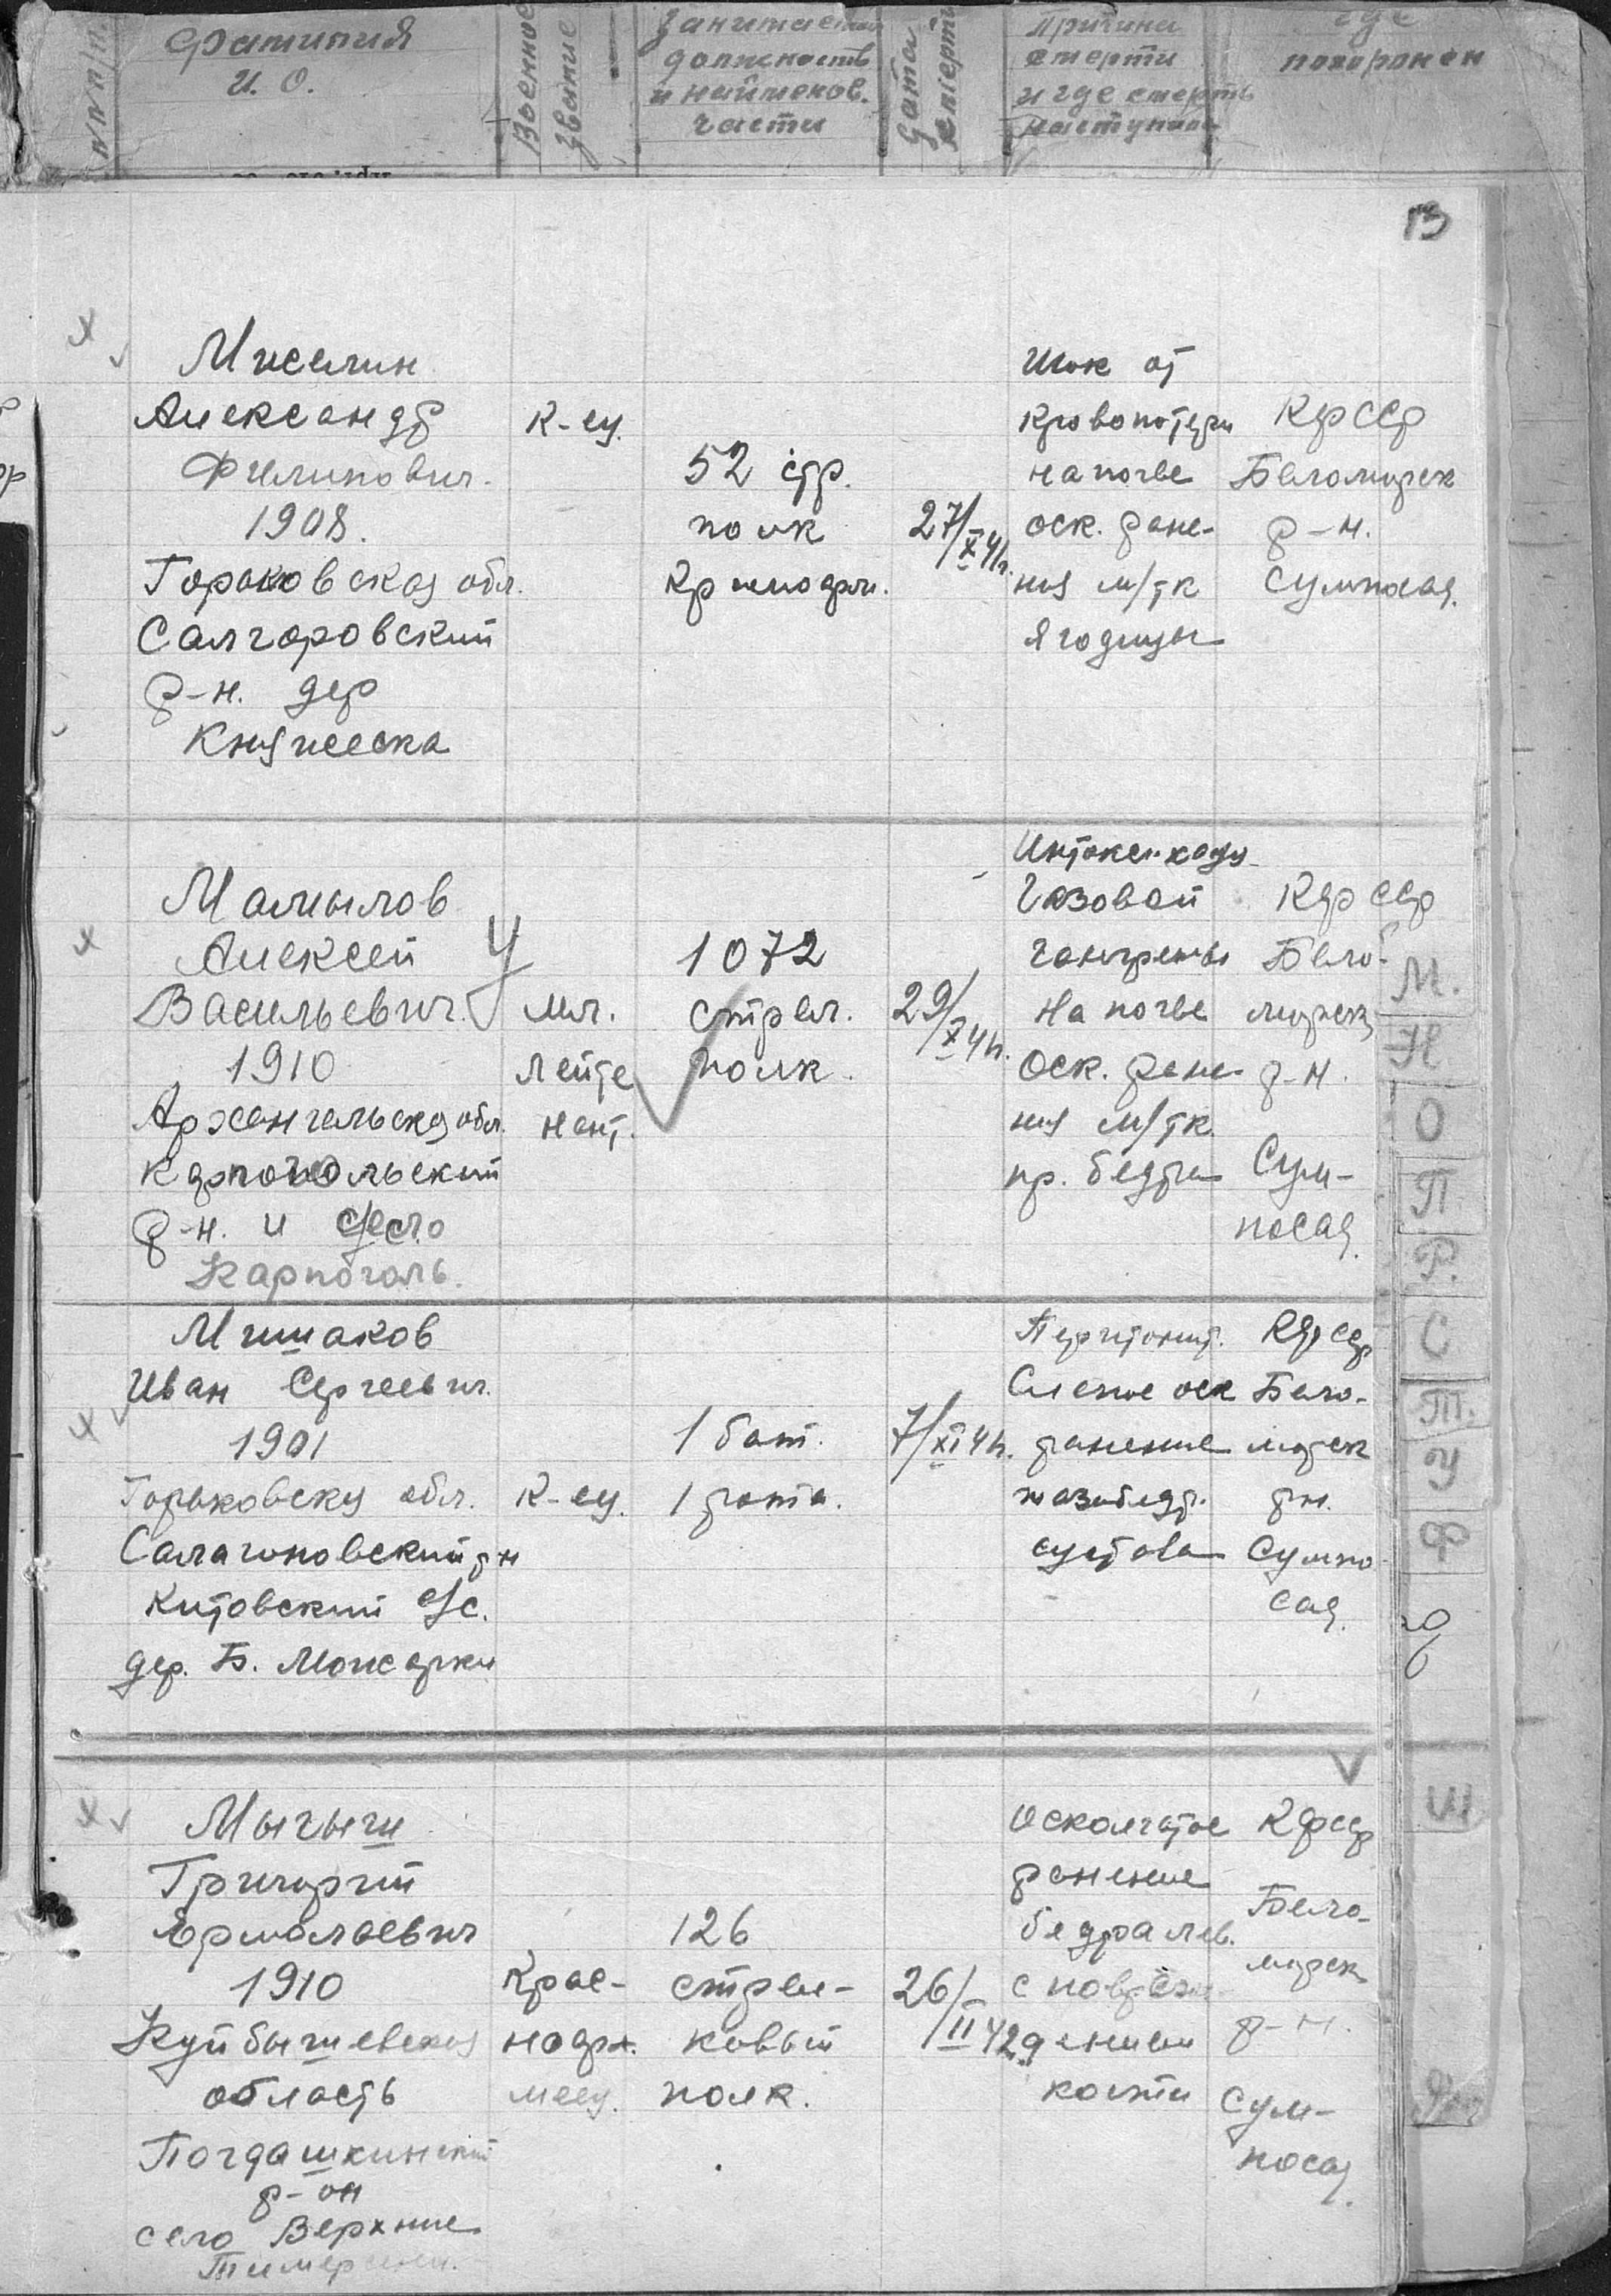 №№ п/п.
Фамилия
И. О.
Военное
звание
Занимаемая
должность
и наименов.
части
Дата
смерти
Причина
смерти
и где смерть
наступила
где
похоронен
13
Мисялин
Александр
Филипович.
1908.
Горьковская обл.
Салгоровский
р-н. дер
Княжевка
К-ец.
52 стр.
полк
Крппогрн.
27/X 41г.
Шок от
кровопотери
на почве
оск. ране-
ния м/тк
Ягодицы
КфССр
Беломорск
р-н.
Сумпосад.
Мамылов
Алексей
Васильевич.
1910
Архангельская обл.
Карпогольский
р-н. и село
Карпоголь.
мл.
лейте
нант.
1072
стрел.
полк.
29/X 41г.
Интоксикация
Газовой
гангрены
На почве
Оск. ране-
ния м/тк.
пр. бедра
КфССр
Бело-
морск
р-н.
Сум-
посад.
Мишаков
Иван Сергеевич.
1901
Горьковская обл.
Салагоновский р-н
Китовский с/с.
дер. Б. Можарки
К-ец.
1 бат.
1 рота.
7/XI 41г.
Перитонит.
Слепое оск
ранение
тазобедр.
сустава
КфСср
Бело-
морск
р-н.
Сумпо-
сад.
Мычыш
Григорий
Ермолаевич
1910
Куйбышевская
область
Богдашкинский
р-он
село Верхние
Тимерсяны.
Крас-
ноарм.
меец.
126
стрел-
ковый
полк.
26/II 42
Осколчатое
ранение
бедра лев.
с повреж-
дением
кости
Кфсср
Бело-
морск
р-н.
Сум-
посад.
М.
Н
О
П.
Р.
С
Т.
У
Ф
Ш